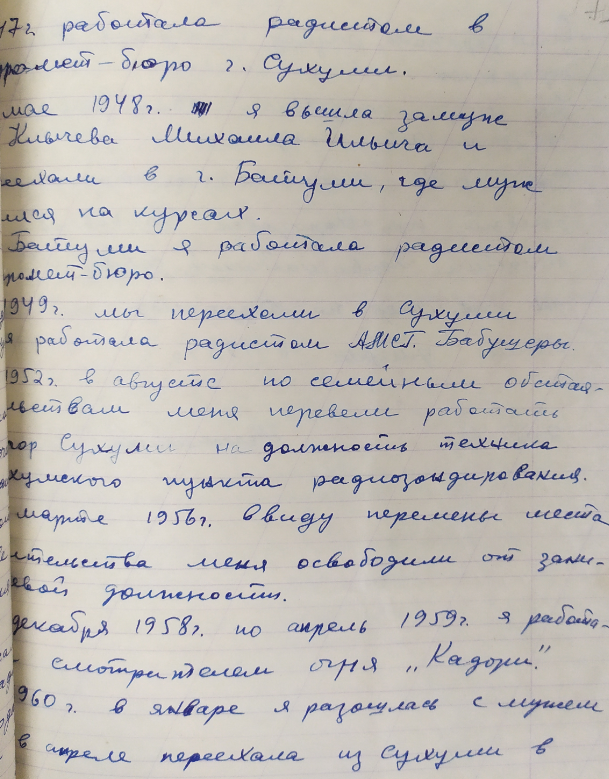 17г. работала радистом в
ромет-бюро г. Сухуми.
мае 1948г. я вышла замуж
Клычева Михаила Ильича и
еехали в г. Батуми, где муж
лся на курсах.
Батуми я работала радистом
ромет-бюро.
1949г. мы переехали в Сухуми
я работала радистом АМСГ. Бабушеры.
1952г. в августе по семейным обстоя-
льствам меня перевели работать
гор Сухуми на должность техника
хумского пункта радиозондирования.
марте 1956г. ввиду перемены места
ительства меня освободили от зани-
аевой должности.
декабря 1958г. по апрель 1959г. я работа-
смотрителем огня „Кадори".
960г. в январе я разошлась с мужем
в апреле переехала из Сухуми в